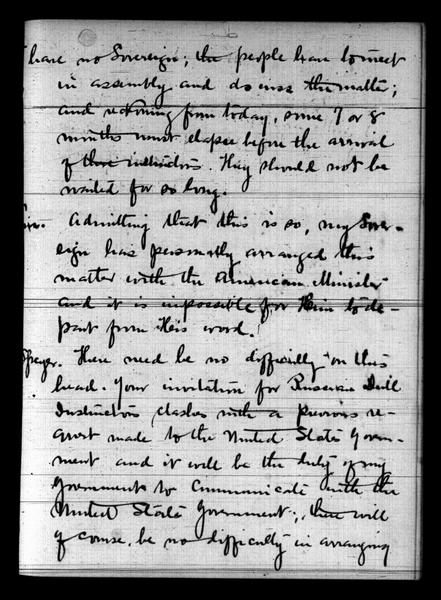 have no Sovereign; the people have to meet
in assembly and discuss the matter;
and reckoning from today, some 7 or 8
months must elapse before the arrival
of those instructors. They should not be
waited for so long.
Admitting that this is so, my Sover-
eign has personally arranged this
matter with the American Minister
and it is impossible for Him to de-
part from His word.
Speyer. There need be no difficulty on this
head. Your invitation for Russian Drill
Instructors clashes with a previous re-
quest made to the United States Govern-
ment and it will be the duty of my
Government to communicate with the
United States Government; there will
of course, be no difficulty in arranging